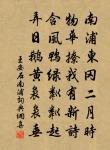 南浦東岡二月時
物華撩我有新詩
含風鴨綠粼粼起
弄日鵝黃裊裊垂
王安石南浦詞典網集